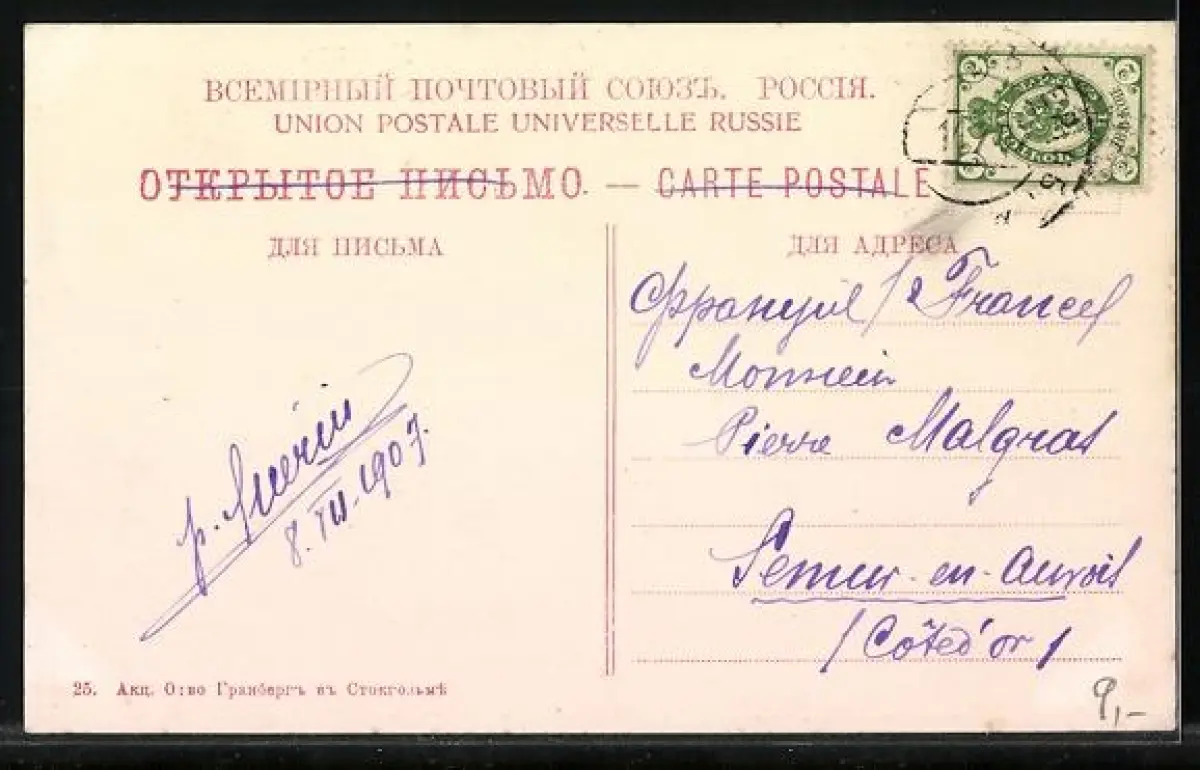 ВСЕМІРНЫЙ ПОЧТОВЫЙ СОЮЗЪ. РОССІЯ.
UNION POSTALE UNIVERSELLE RUSSIE
ОТКРЫТОЕ ПИСЬМО. — CARTE POSTALE
ДЛЯ ПИСЬМА
ДЛЯ АДРЕСА
/ France/
Monsieur
Pierre Malgras
Semur-en-Auxois
/Côte d'or/
p. Guérin
8. VII. 1907.
25. Акц. О:во Гранбергъ въ Стокгольмѣ
9,-